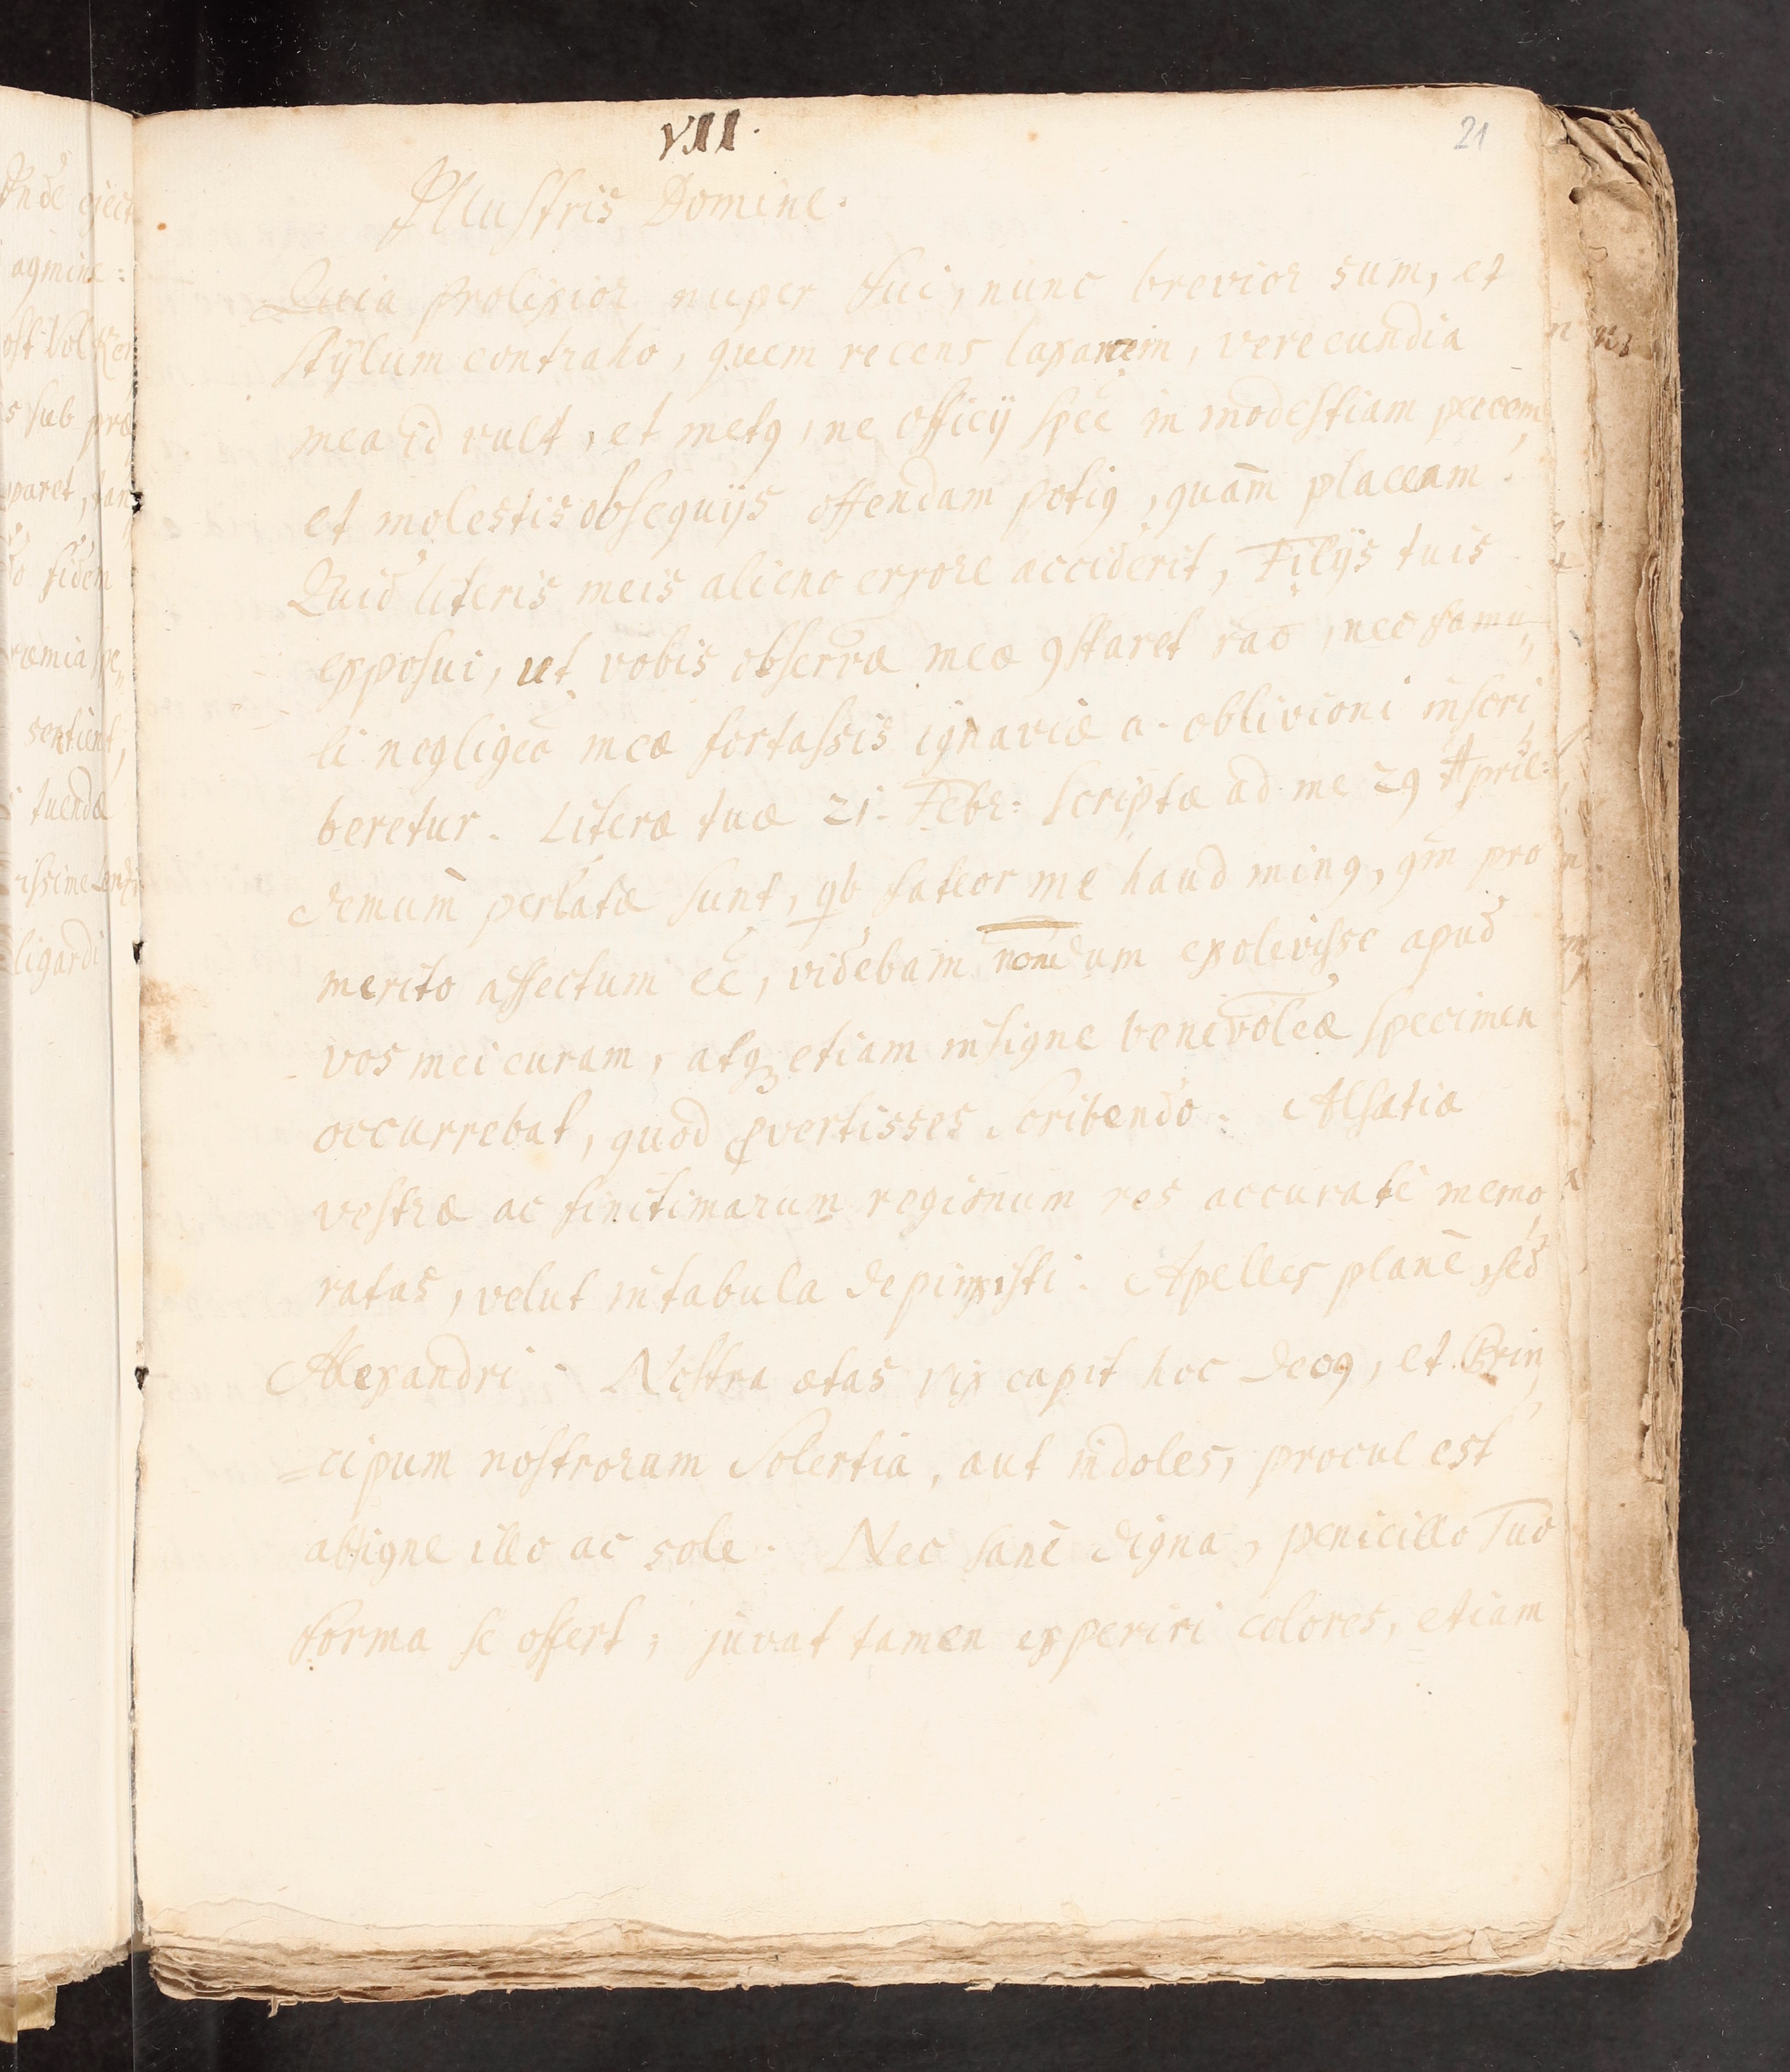 VII.
21
Illustris Domine.
Quia prolixior nuper fui, nunc brevior sum, et
stÿlum contraho, quem recens laxarem, verecundia
mea id vult, et metꝯ, ne officÿ spēē in modestiam peccem,
et molestis obsequÿs offendam potiꝯ, quàm placeam.
Quid literis meis alieno errore acciderit, Filÿs tuis
exposui, ut vobis observāē meæ ꝯstaret raō, nec famu„
li negligēā meæ fortassis ignaviæ a. oblivioni inscri„
beretur. Literæ tuæ 21. Febr: scriptæ ad me 29 April:
demùm perlatæ sunt, qb fateor me haud minꝯ, qm̄ pro
merito affectum eē, videbam nondum exolevisse apud
vos mei curam, atqꝫ etiam insigne benevolēæ specimen
occurrebat, quod ꝑvertisses scribendo. Alsatiæ
vestræ ac finitimarum regionum res accuratè memo„
ratas, velut in tabula depinxisti. Apelles planè, sed
Alexandri. Nostra ætas vix capit hoc decꝯ, et Prin„
=cipum nostrorum solertia, aut indoles, procul est
ab igne illo ac sole. Nec sanè digna, penicillo Tuo
forma se offert; juvat tamen experiri colores, etiam